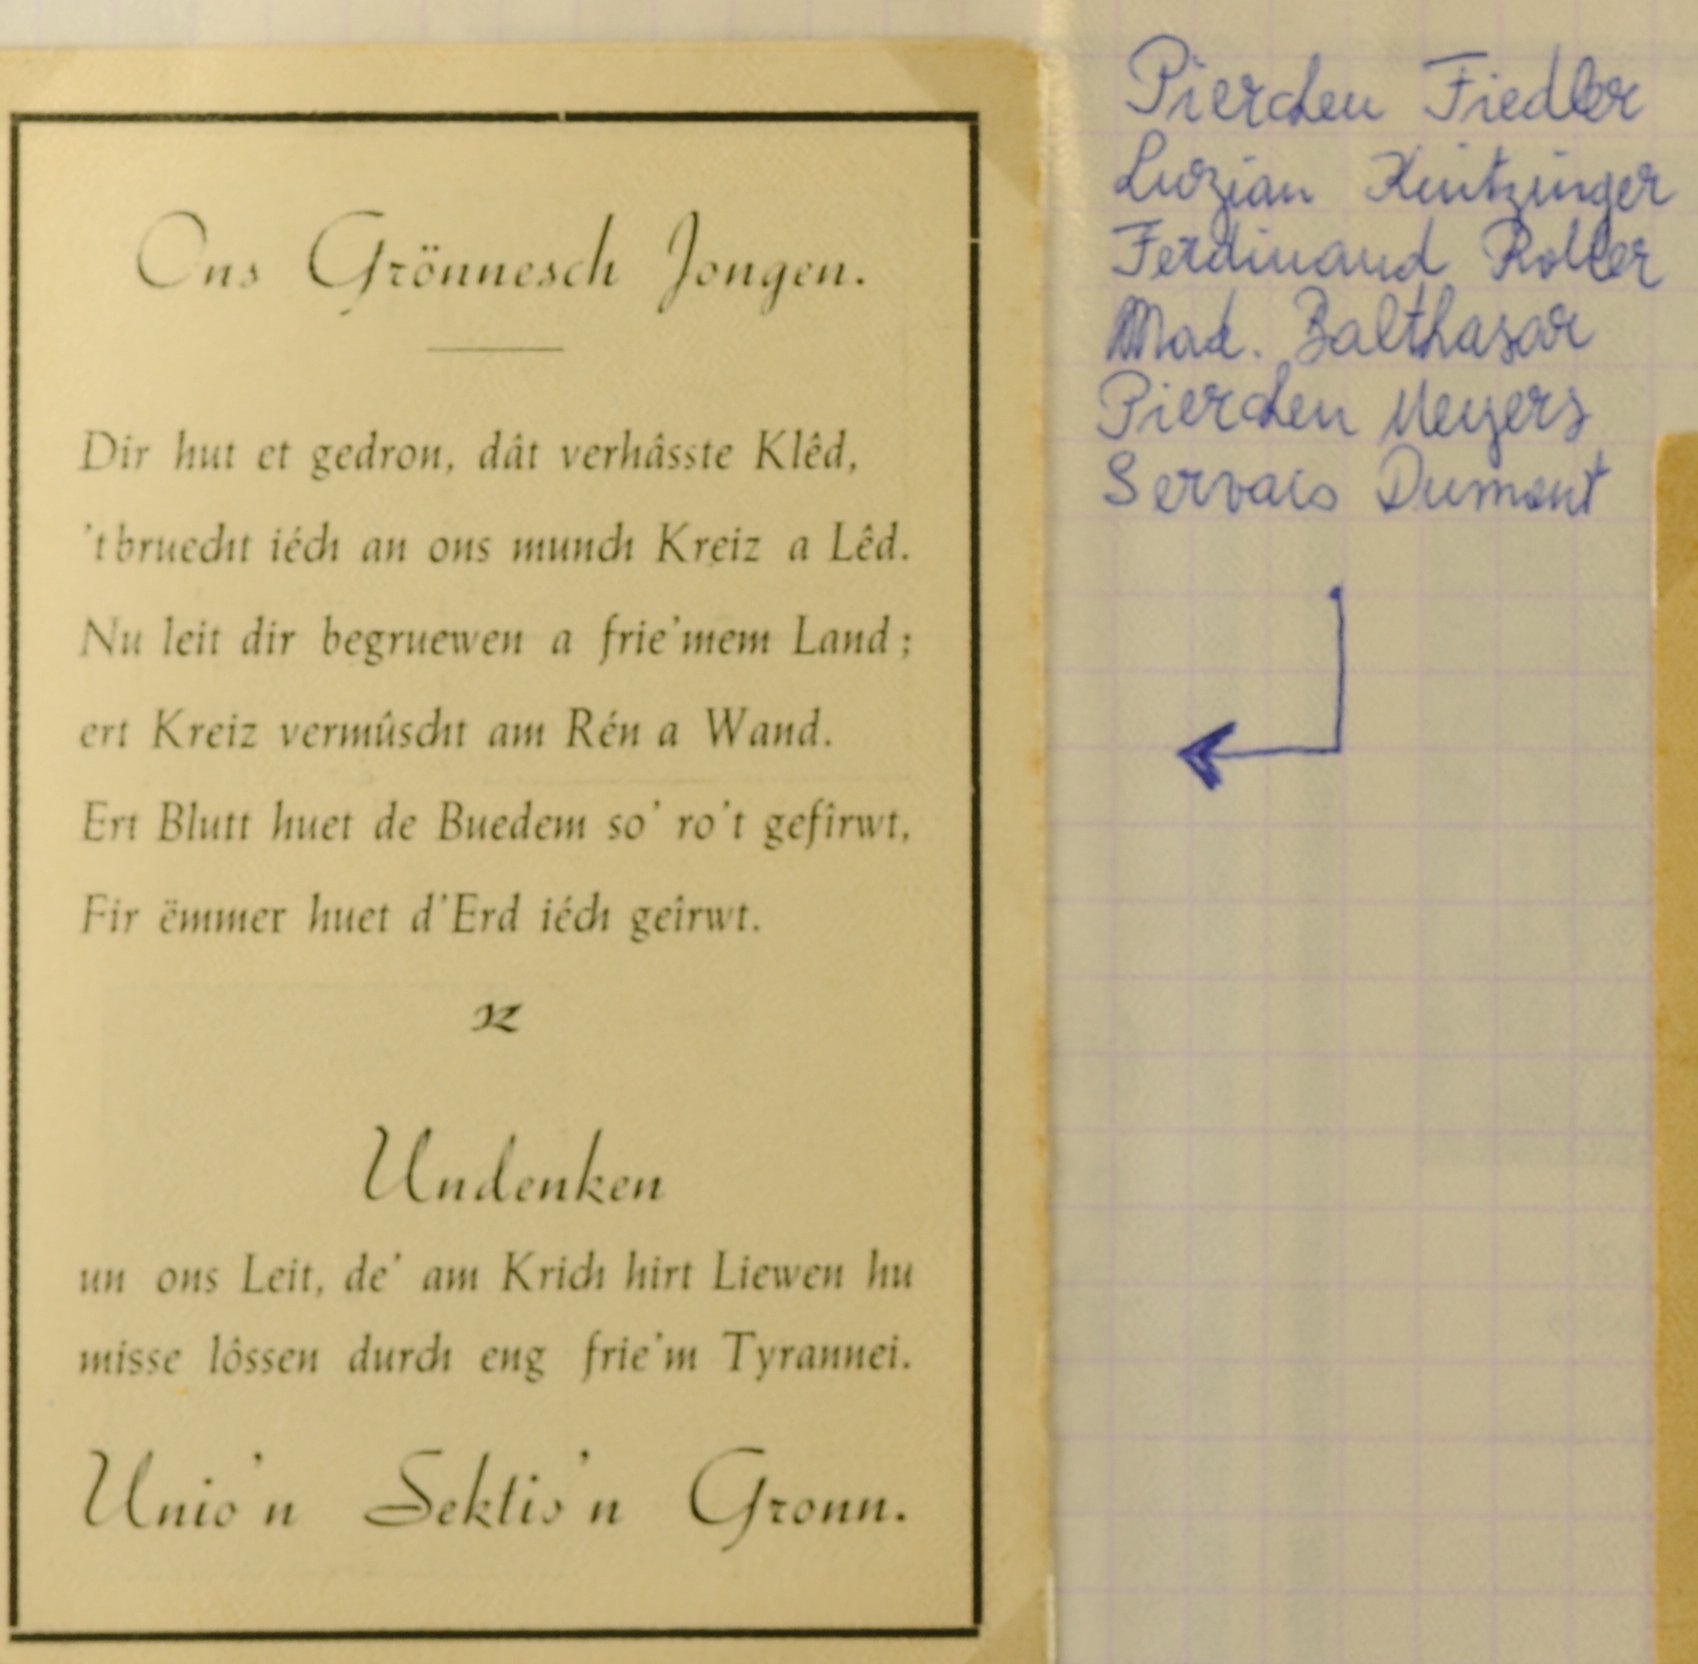 Ons Grönnesch Jongen.
Dir hut et gedron, dât verhâsste Klêd,
't bruecht iéch an ons munch Kreiz a Lêd.
Nu leit dir begruewen a frie'mem Land;
ert Kreiz vermûscht am Rén a Wand.
Ert Blutt huet de Buedem so' ro't gefîrwt,
Fir ëmmer huet d'Erd iéch geîrwt.
Undenken
un ons Leit, de' am Krich hirt Liewen hu
misse lôssen durch eng frie'm Tyrannei.
Unio'n Sektio'n Gronn.
Pierchen Fiedler
Luzian Kintzinger
Ferdinand Roller
Mad. Balthasar
Pierchen Meyers
Servais Dumont